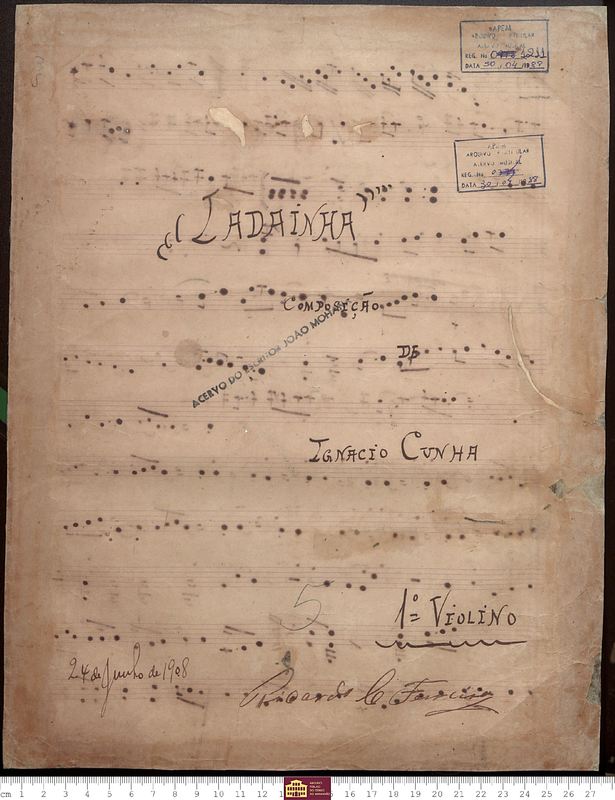 APEM
ARQUIVO PARTICULAR
ACERVO MUSICAL
REG. No 1211
DATA 30.04.1988
APEM
ARQUIVO PARTICULAR
ACERVO MUSICAL
REG. No
DATA 30.04.1988
LADAINHA
COMPOSIÇÃO
ACERVO DO JOÃO MOHANA
DE
IGNACIO CUNHA
5
1º VIOLINO
24 de Junho de 1908
Ricardo C. Ferreira
cm 1 2 3 4 5 6 7 8 9 10 11 12 16 17 18 19 20 21 22 23 24 25 26 27